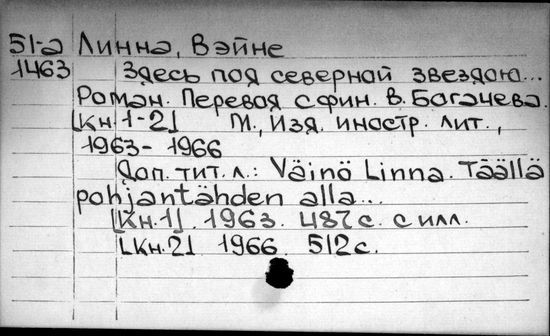 51-а Линна, Вэйне
1463 Здесь под северной звездою...
Роман. Перевод с фин. В. Богачева.
[Кн. 1-2] М., Изд. иностр. лит.,
1963-1966
Доп. тит. л.: Väinö Linna. Täällä
pohjantähden alla...
[Кн. 1]. 1963. 487 с. с илл.
[Кн. 2] 1966. 512 с.